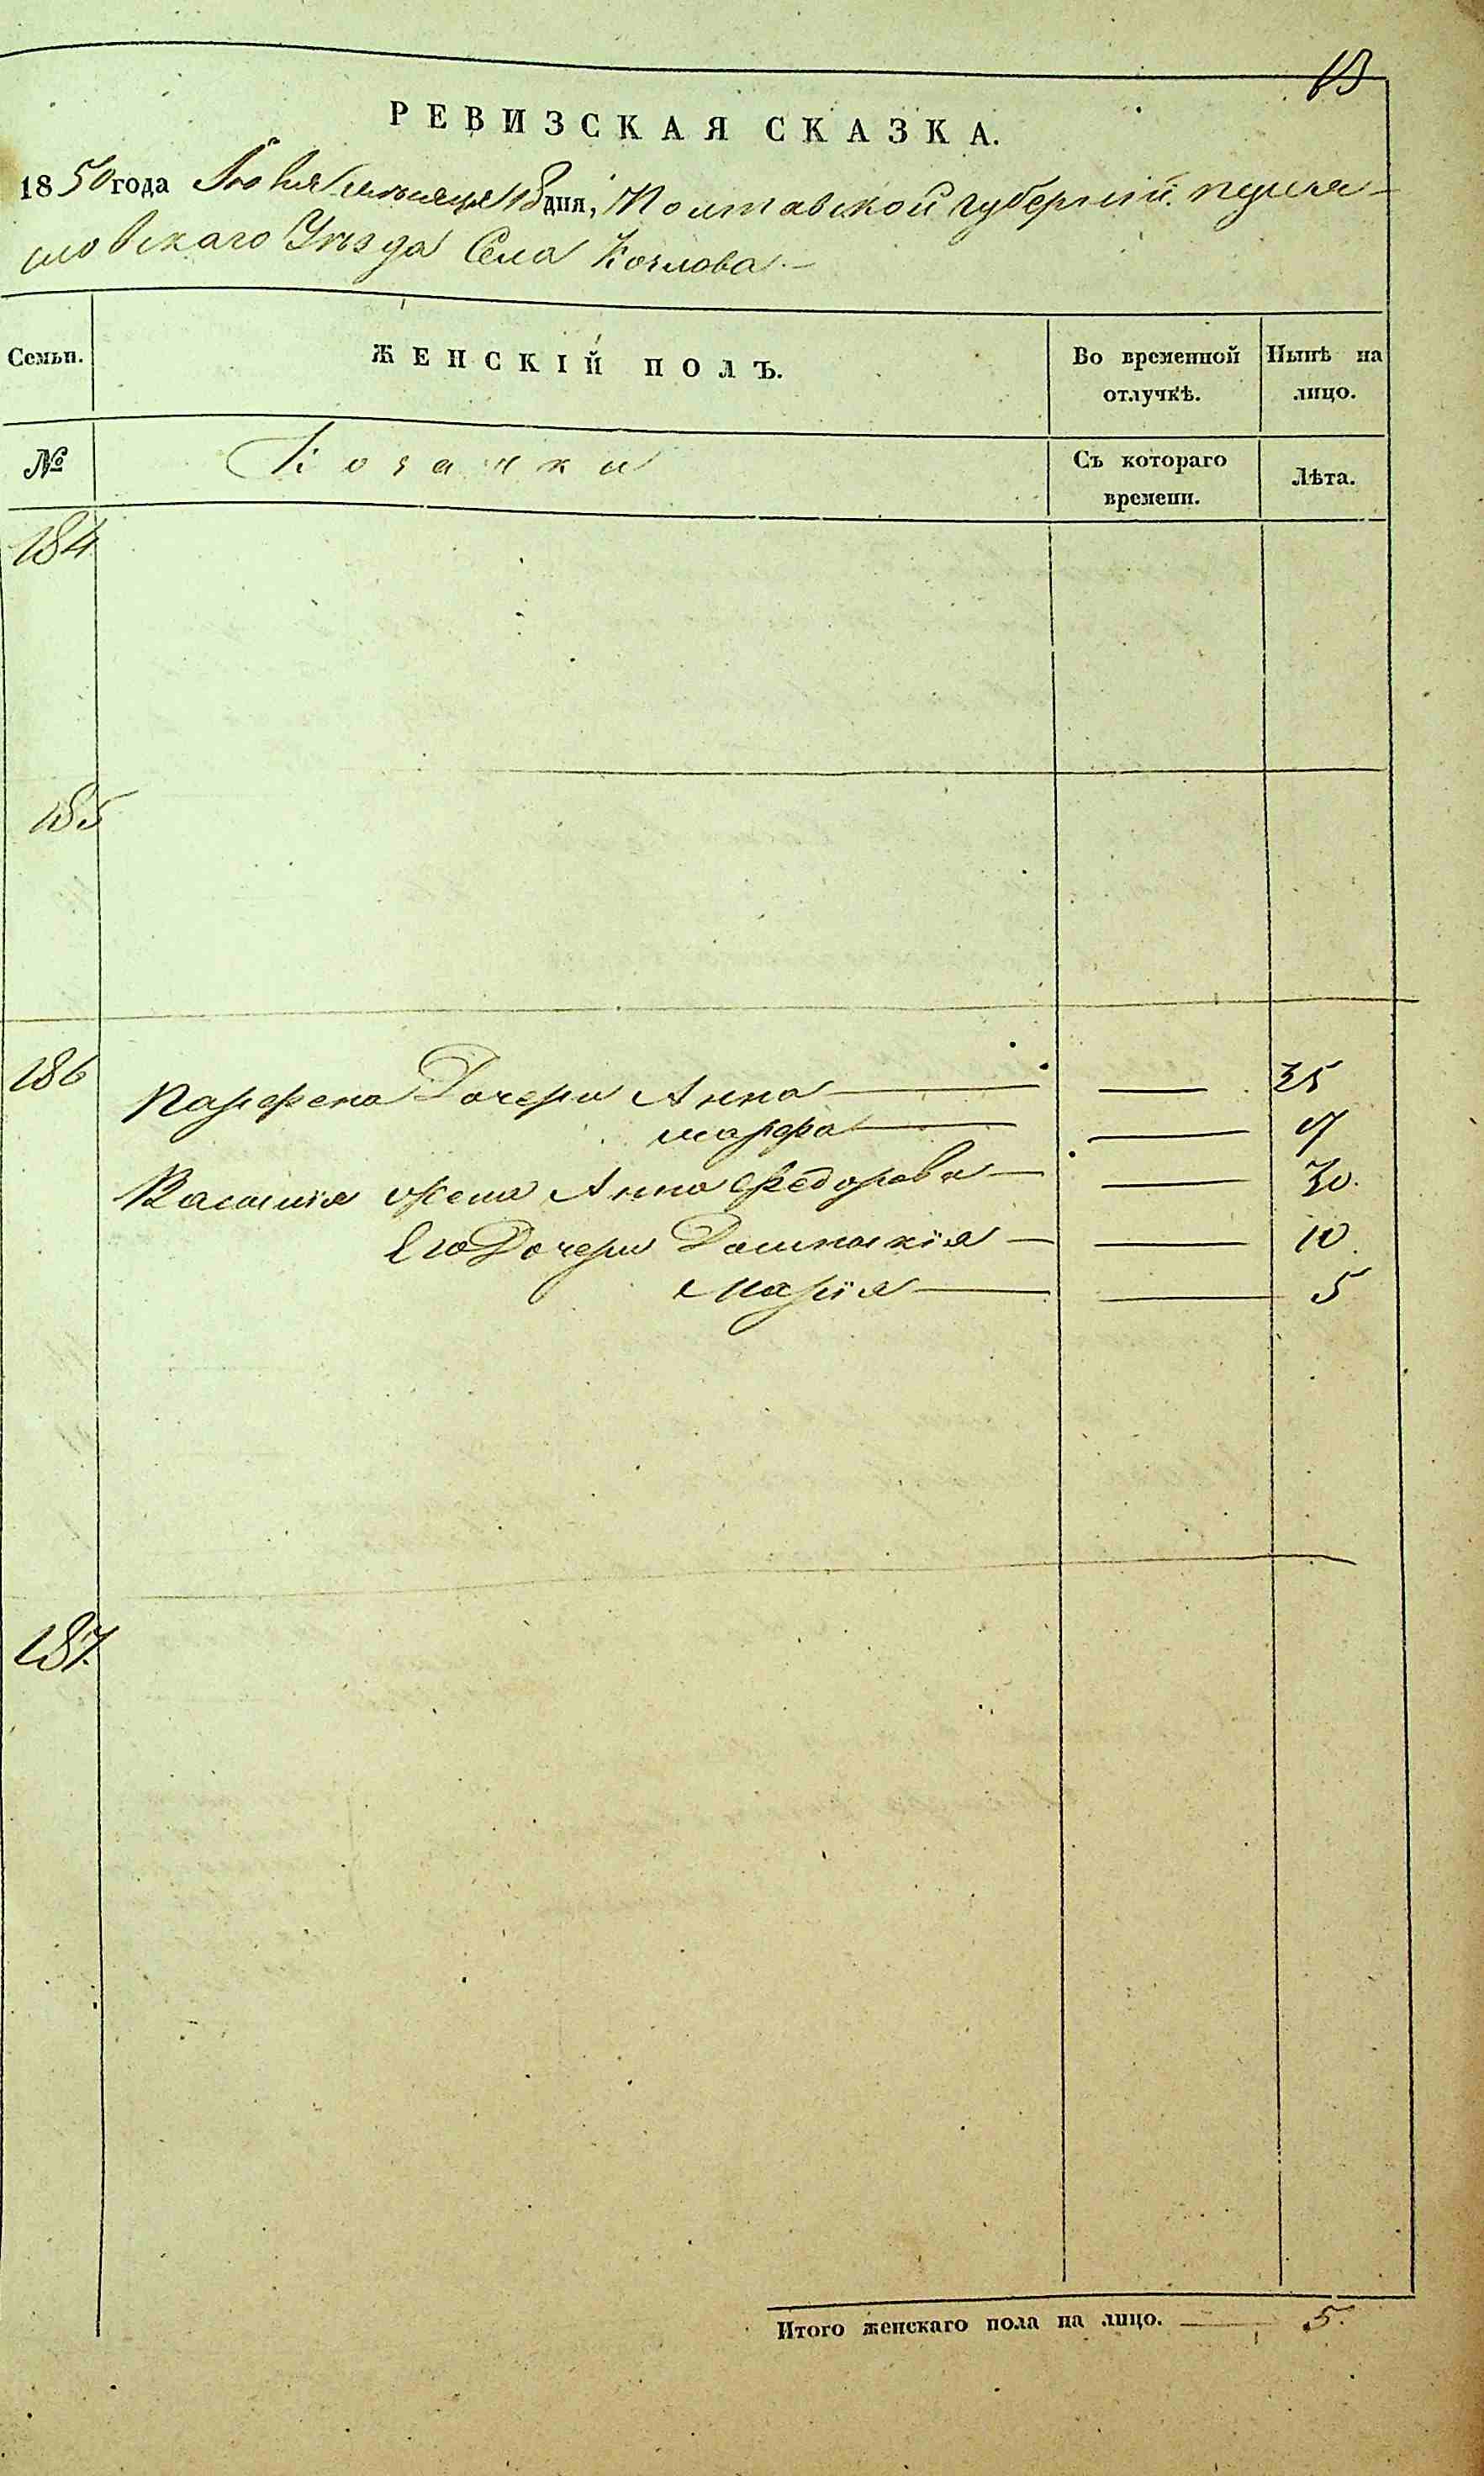 13
РЕВИЗСКАЯ СКАЗКА.
1850 года Іюня месяца 13 дня, Полтавской губерніи Переяс-
ловскаго Уезда Села Козлова
Семьи.
ЖЕНСКІЙ ПОЛЪ.
Во временной отлучкѣ.
Нынѣ на лицо.
№
Козачки
Съ котораго времени.
Лѣта.
184
185
186 Парфена Дочери Анна — — 35
Марфа — —
Василия жена Анна Федорова — — 30.
Его Дочери Домникія — — 10.
Марія — — 5
187.
Итого женскаго пола на лицо. — 5.